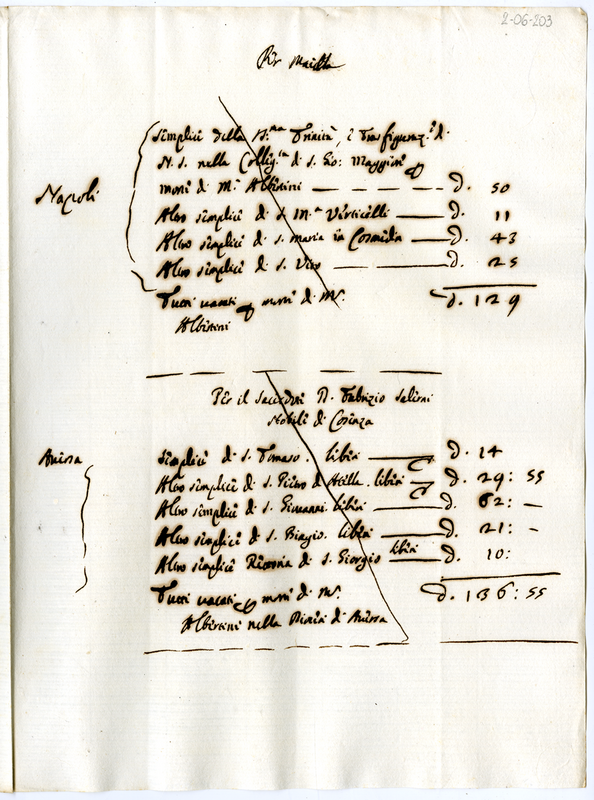 2-06-203
Per
Napoli
Semplici della SS.ma Trinità, e Trasfiguraz.e di
N. S. nella Colleg.ta di S. Gio: Maggiore
morte di M.r Albertini — d. 50
Altro semplice di S. M.a Verticelli — d. 11
Altro semplice di S. Maria in Cosmedin — d. 43
Altro semplice di S. Vito — d. 25
Tutti vacati p morte di M.r d. 129
Albertini
Per il Sacerdote D. Fabrizio Salerni
Nobile di Cosenza
Aversa
Semplice di S. Tomaso. libera — d. 14
Altro semplice di S. Pietro di Atella. libera — d. 29: 55
Altro semplice di S. Giovanni libera — d. 62: —
Altro semplice di S. Biagio. libera — d. 21: —
Altro semplice Rettoria di S. Giorgio libera — d. 10:
Tutti vacati p morte di M.r d. 136: 55
Albertini nella Diocesi di Aversa